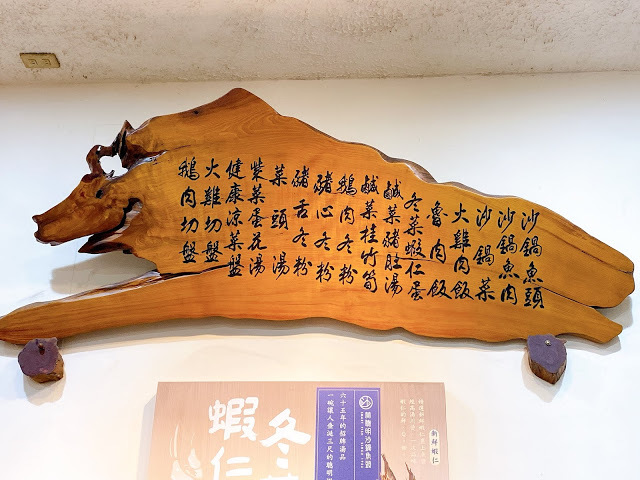 沙鍋魚頭
沙鍋魚肉
沙鍋菜
火雞肉飯
魯肉飯
冬菜蝦仁蛋
鹹菜豬肚湯
鹹菜桂竹筍
鵝肉冬粉
豬心冬粉
豬舌冬粉
菜頭湯
紫菜蛋花湯
健康涼菜盤
火雞切盤
鵝肉切盤
新鮮蝦仁
林聰明沙鍋魚頭
六十五年的招牌湯品
一碗讓人垂涎三尺的聰明
冬
蝦仁